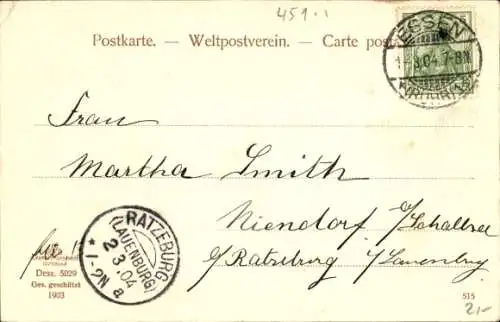 459.1
Postkarte. — Weltpostverein. — Carte post
ESSEN
1.3.04.7-8N
Frau
Martha Smith
Niendorf a/Schallsee
b/Ratzeburg i/Lauenburg
RATZEBURG
(LAUENBURG)
2.3.04
* 1-2N a
Dess. 5029
Ges. geschützt
1903
515
2,-